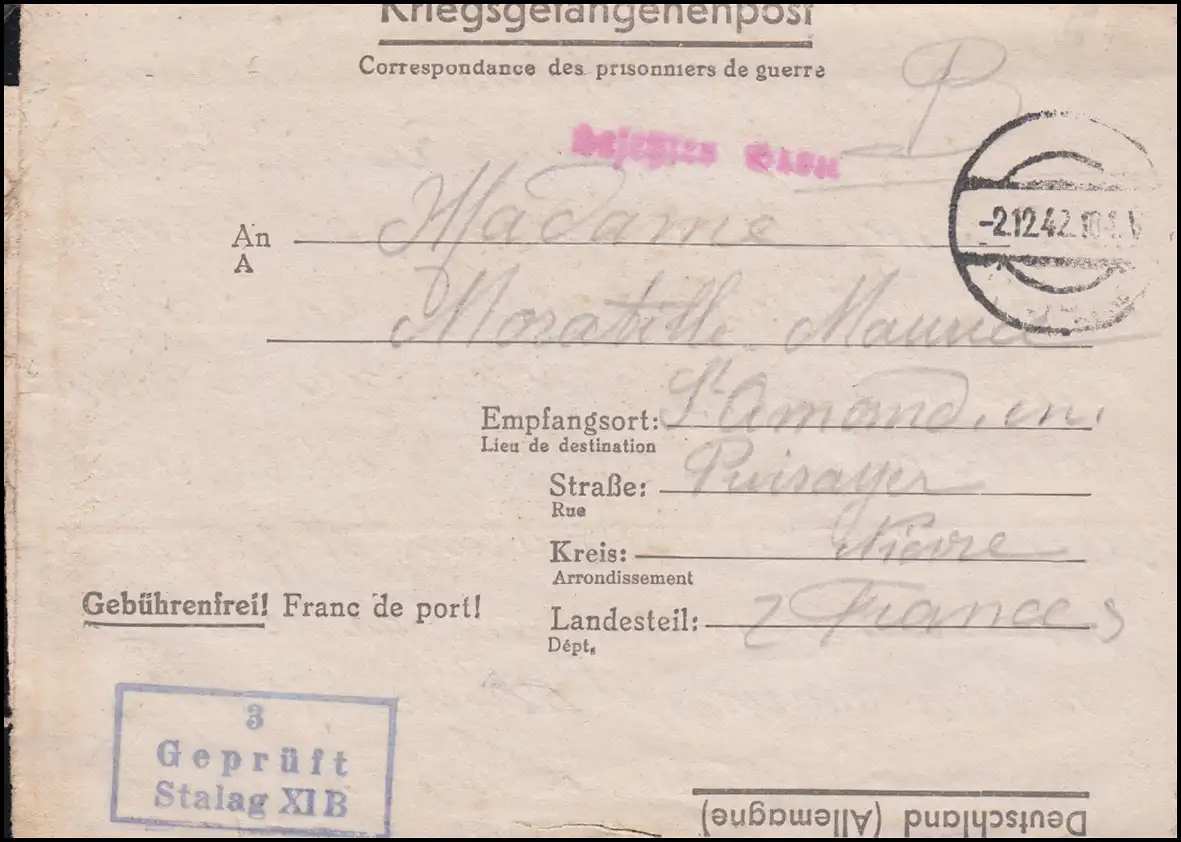 Kriegsgefangenenpost
Correspondance des prisonniers de guerre
-2.12.42.10
An Madame
A
Moratille Maurice
Empfangsort: St Amand. en.
Lieu de destination
Straße: Puisayer
Rue
Kreis: Nièvre
Arrondissement
Gebührenfrei! Franc de port!
Landesteil: France
Dépt.
3
Geprüft
Stalag XI B
Deutschland (Allemagne)